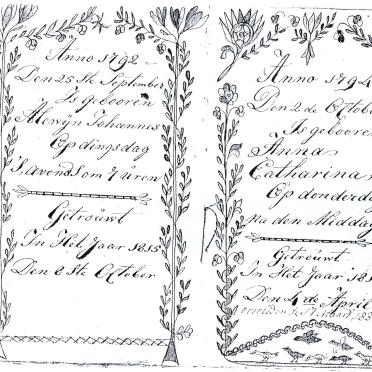 Anno 1792
Den 25 Ste September
Is gebooren
Alewijn Johannes
Op dingsdag
S,avonds om 7 uren
Getrouwt
In Het Jaar 1815
Den 8 Ste October
Anno 1794
Den 2 de Octob
Is geboore
Anna
Catharina
Op donderd
na den Middag
Getrouwt
In Het Jaar 18
Den 4 de April
overleden